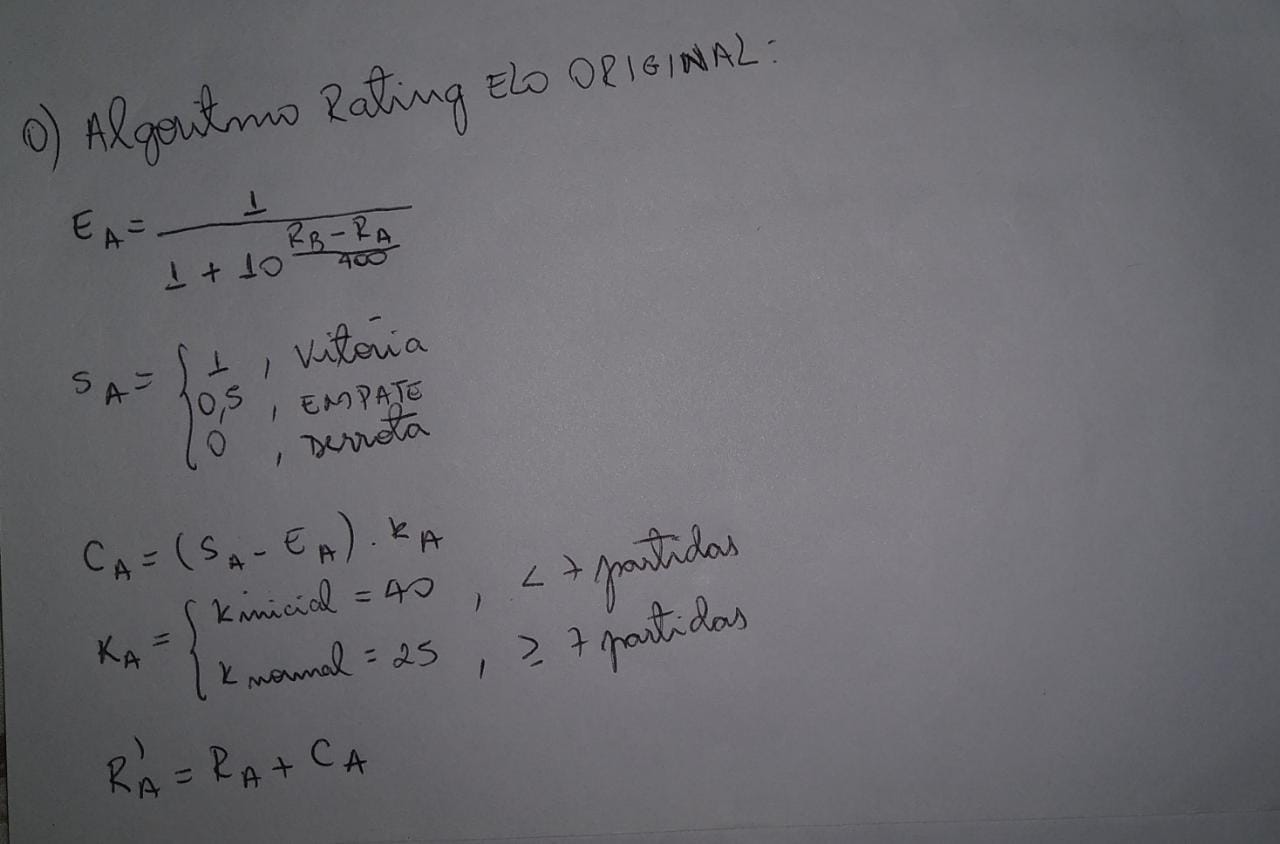 0) Algoritmo Rating ELO ORIGINAL:
E_A = 1 / (1 + 10^((R_B - R_A)/400))
S_A = { 1 , Vitória
0,5 , EMPATE
0 , Derrota
C_A = (S_A - E_A) . K_A
K_A = { K inicial = 40 , < 7 partidas
K normal = 25 , ≥ 7 partidas
R'_A = R_A + C_A